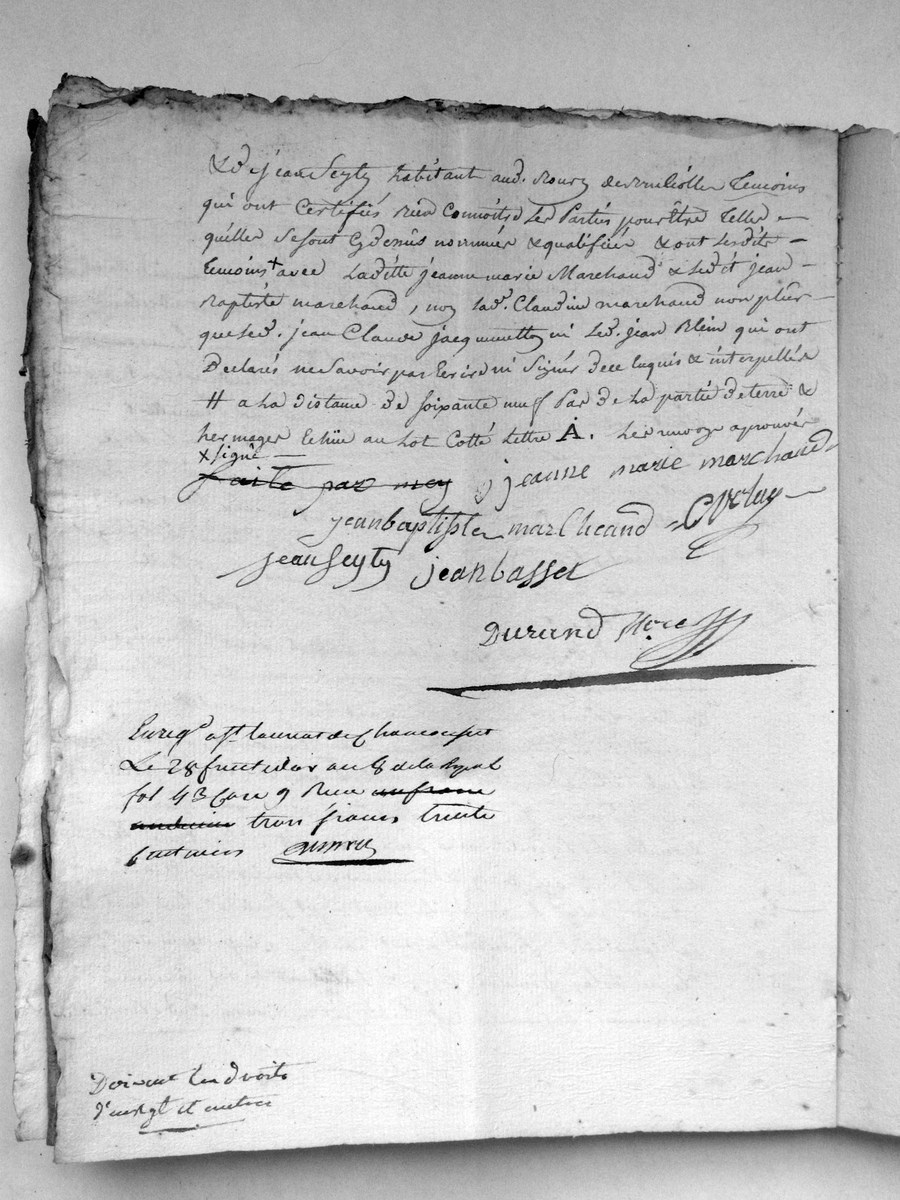 & d. jean Seyty habitant aud. Bourg de Temoins
qui ont Certifiés bien Connoitre Les Parties pour être telles
quelles se sont Cydessus nommées & qualifiées, & ont lesdits
temoins + avec Laditte jeanne marie Marchand & led. jean
Baptiste marchand, non lad. Claudine marchand non plus
que led. jean Claude jacquemetton ni led. jean Blein qui ont
Declarés ne Savoir pas Ecrire ni Signer de ce Enquis & interpellés
# a La distance de soixante neuf Par de La partie de terre &
hermages Echüe au Lot Cotté Lettre A. Les renvoys aprouvés
x signé
faite par moy jeanne marie marchand
jean baptiste marcheand CVelay
jean Seyty jean basset
Durand Nre
Enregé au Bureau de
Le 28 fructidor an 8 de la Repub
fol 43 Case 9 Reçu un franc
trois francs trente
centimes
Doivent Les droits
d'enregt et